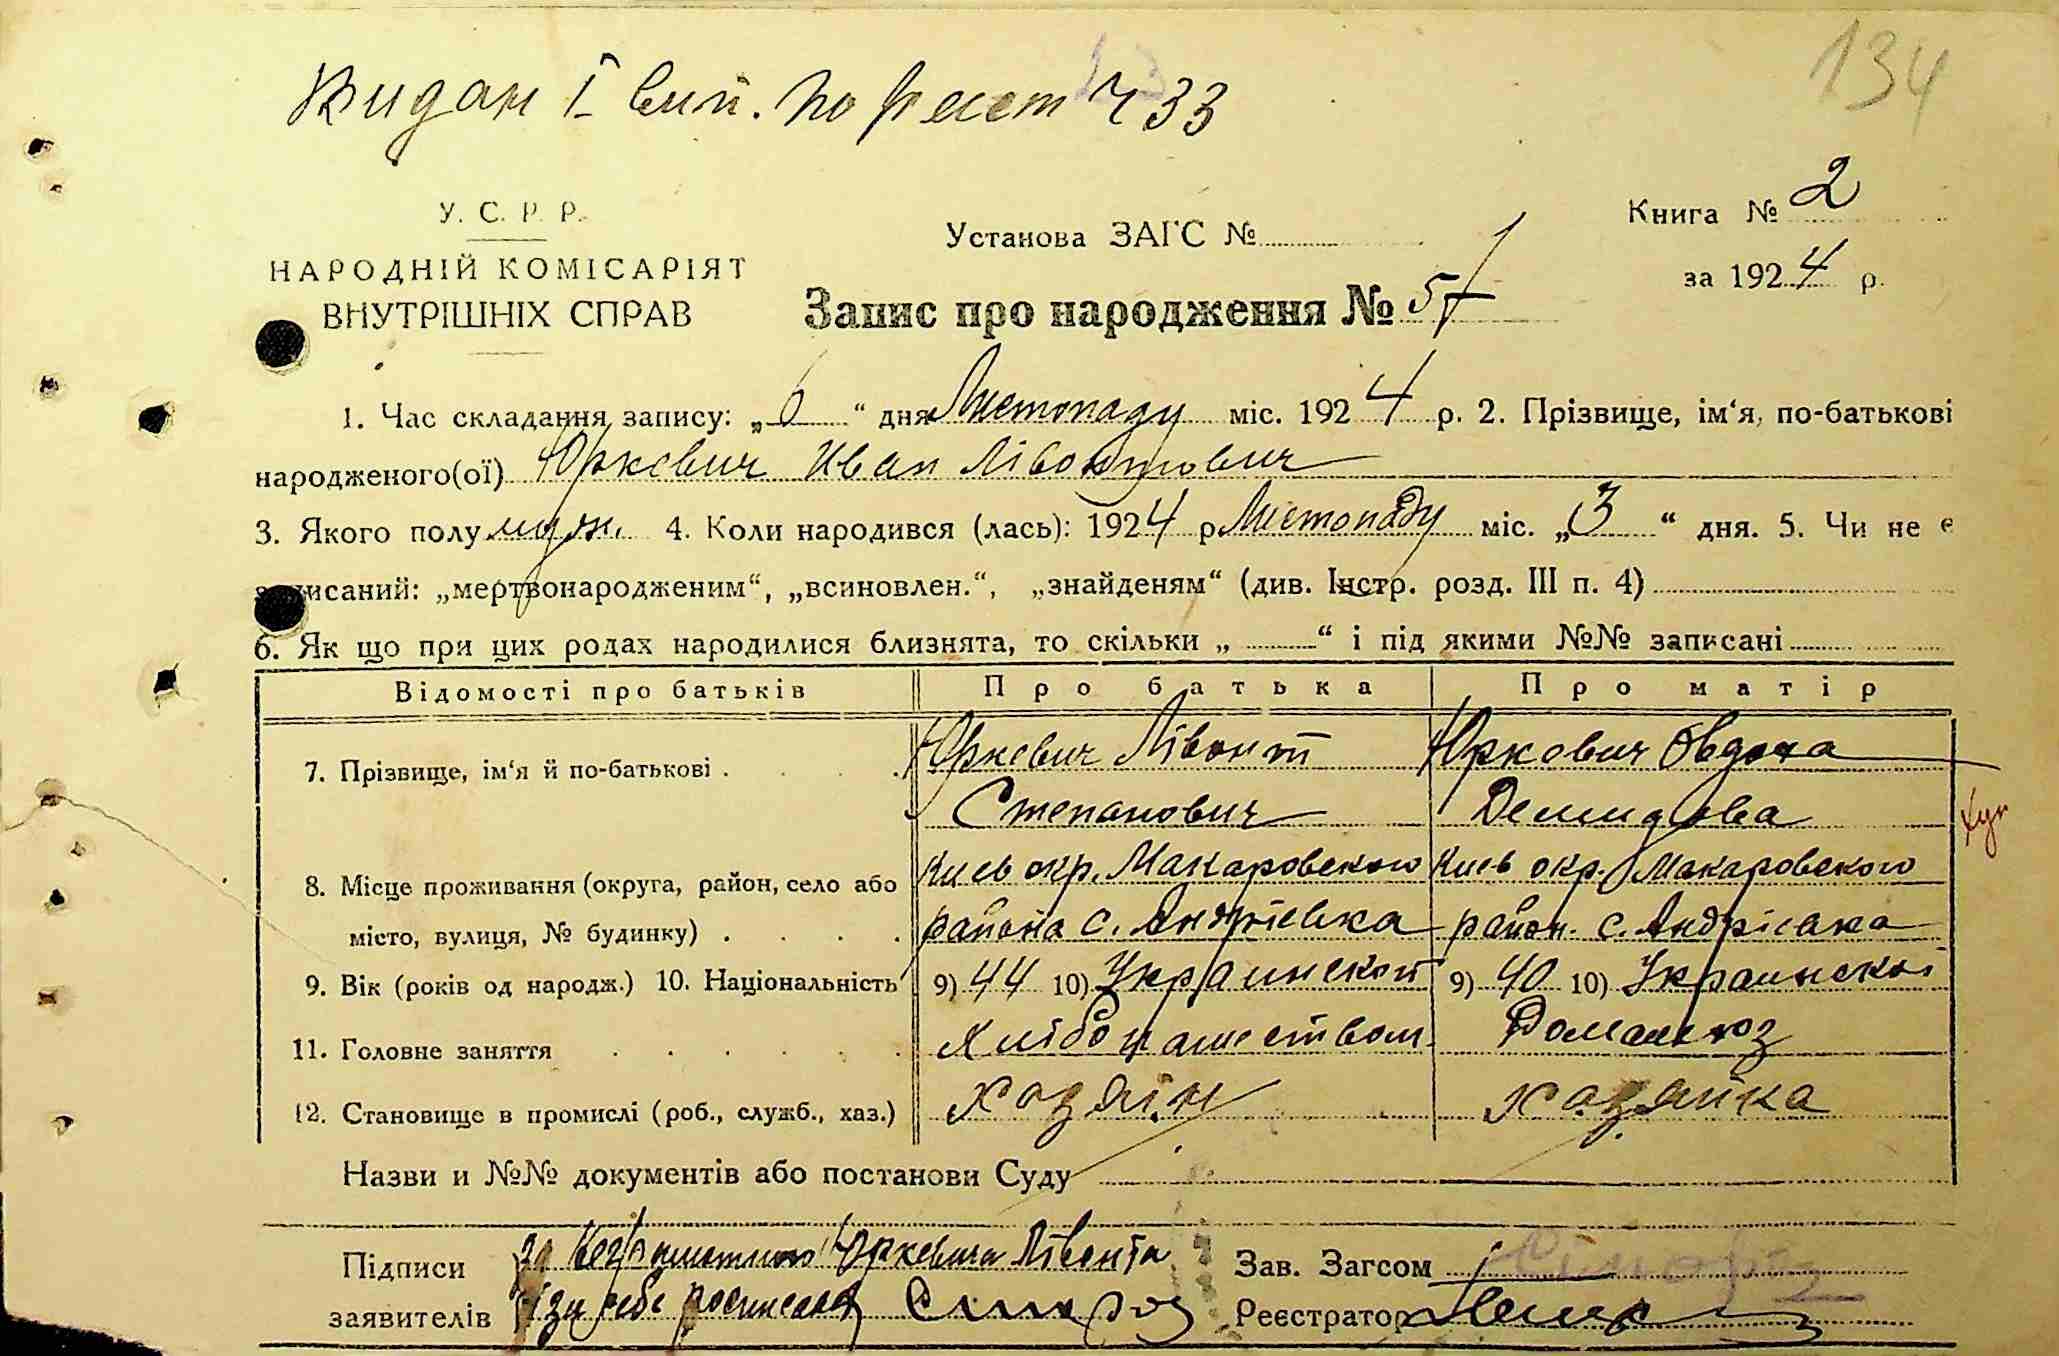 134
Видан I вип. по реест Ч 33
У. С. Р. Р.
НАРОДНІЙ КОМІСАРІЯТ
ВНУТРІШНІХ СПРАВ
Установа ЗАГС №
Книга № 2
за 1924 р.
Запис про народження № 57
1. Час складання запису: „6“ дня Листопаду міс. 1924 р. 2. Прізвище, ім‘я, по-батькові
народженого(ої) Юркевич Иван Лівонтович
3. Якого полу муж. 4. Коли народився (лась): 1924 р Листопаду міс. „3“ дня. 5. Чи не є
записаний: „мертвонародженим“, „всиновлен.“, „знайденям“ (див. Інстр. розд. III п. 4)
6. Як що при цих родах народилися близнята, то скільки „ “ і під якими №№ записані
Відомості про батьків Про батька Про матір
7. Прізвище, ім‘я й по-батькові . Юркевич Лівонт Юркович Овдока
Степанович Демидова
8. Місце проживання (округа, район, село або Київ окр. Макаровского Київ окр. Макаровского
місто, вулиця, № будинку) . района с. Андрієвка район. с. Андрієвка
9. Вік (років од народж.) 10. Національність 9) 44 10) Украинской 9) 40 10) Украинской
11. Головне заняття Хлібопашеством
12. Становище в промислі (роб., служб., хаз.) хозяїн хозяйка
Назви и №№ документів або постанови Суду
Підписи за неграмотного Юркевича Лівонта
заявителів і за себе росписався
Зав. Загсом
Реєстратор